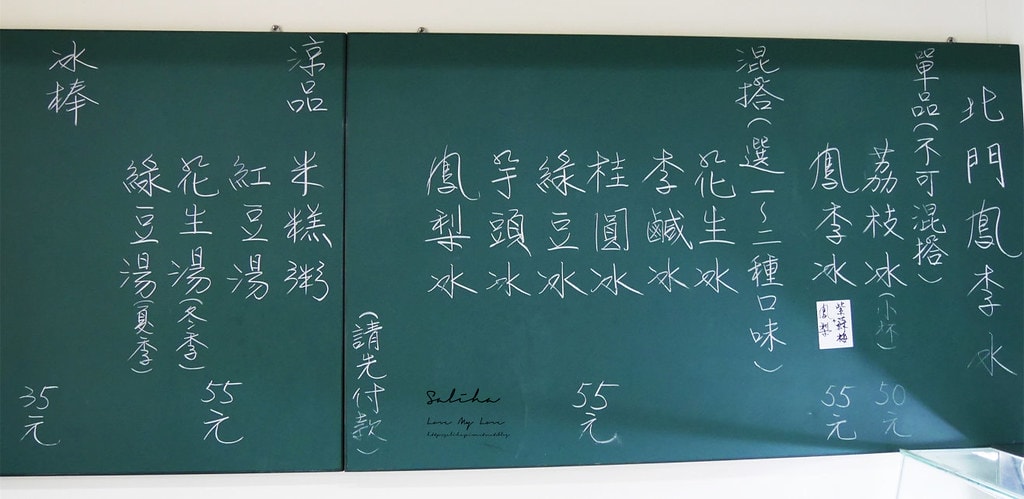 北門鳳李冰
單品(不可混搭)
荔枝冰(小杯)
50元
鳳李冰
紫蘇梅
鳳梨
55元
混搭(選一~二種口味)
花生冰
李鹹冰
桂圓冰
綠豆冰
芋頭冰
鳳梨冰
55元
(請先付款)
涼品
米糕粥
紅豆湯
花生湯(冬季)
綠豆湯(夏季)
55元
冰棒
35元
Saliha
Love My Love